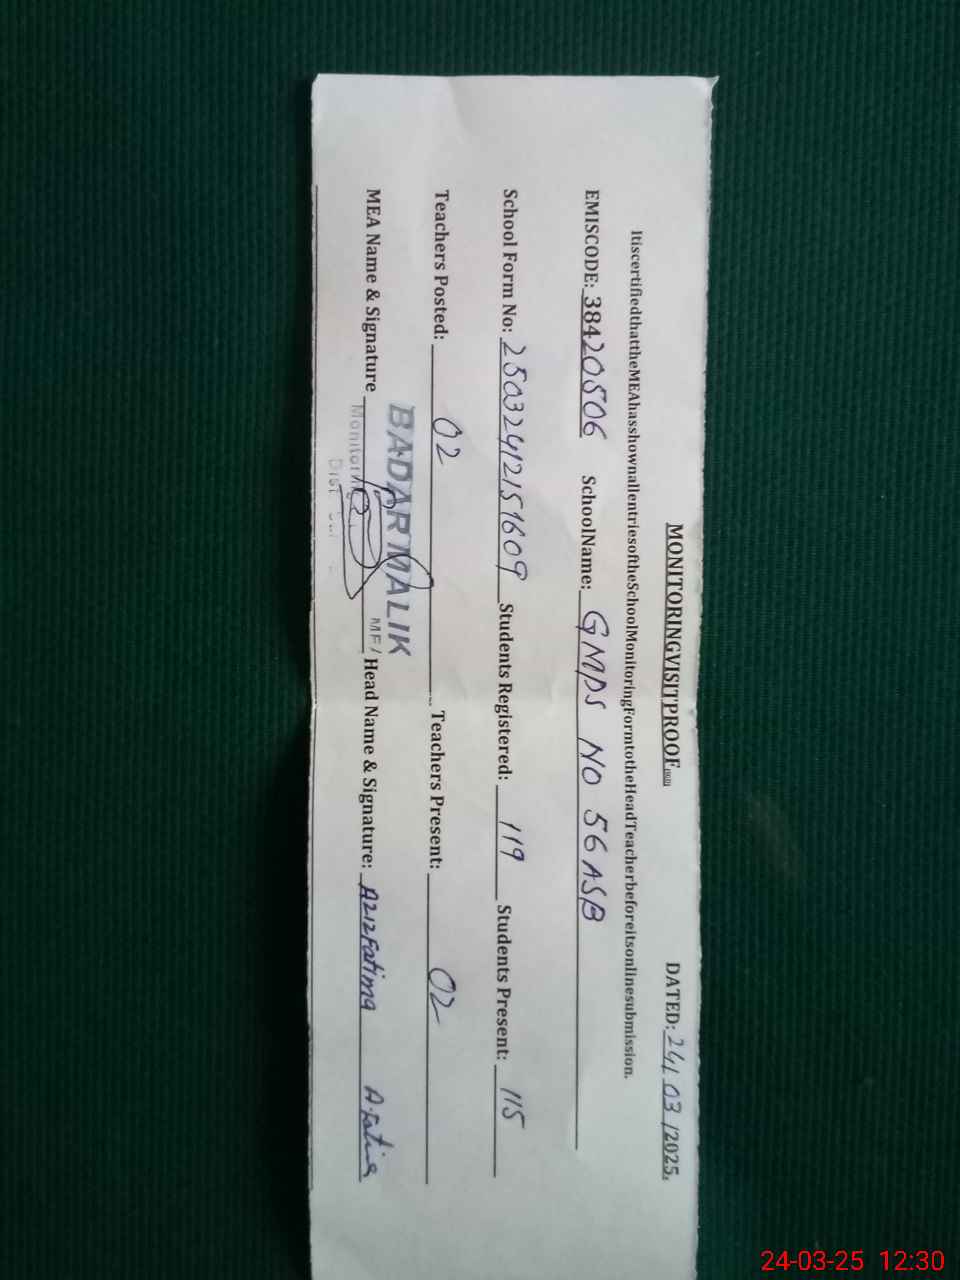 MONITORINGVISITPROOF DATED: 24/03/2025.
ItiscertifiedthattheMEAhasshownallentriesoftheSchoolMonitoringFormtotheHeadTeacherbeforeitsonlinesubmission.
EMISCODE: 38420506 SchoolName: GMPS NO 56 ASB
School Form No: 25032412151609 Students Registered: 119 Students Present: 115
Teachers Posted: 02 Teachers Present: 02
BADAR MALIK
MEA Name & Signature Head Name & Signature: Aziz Fatima A.Fatima
Monitoring
24-03-25 12:30